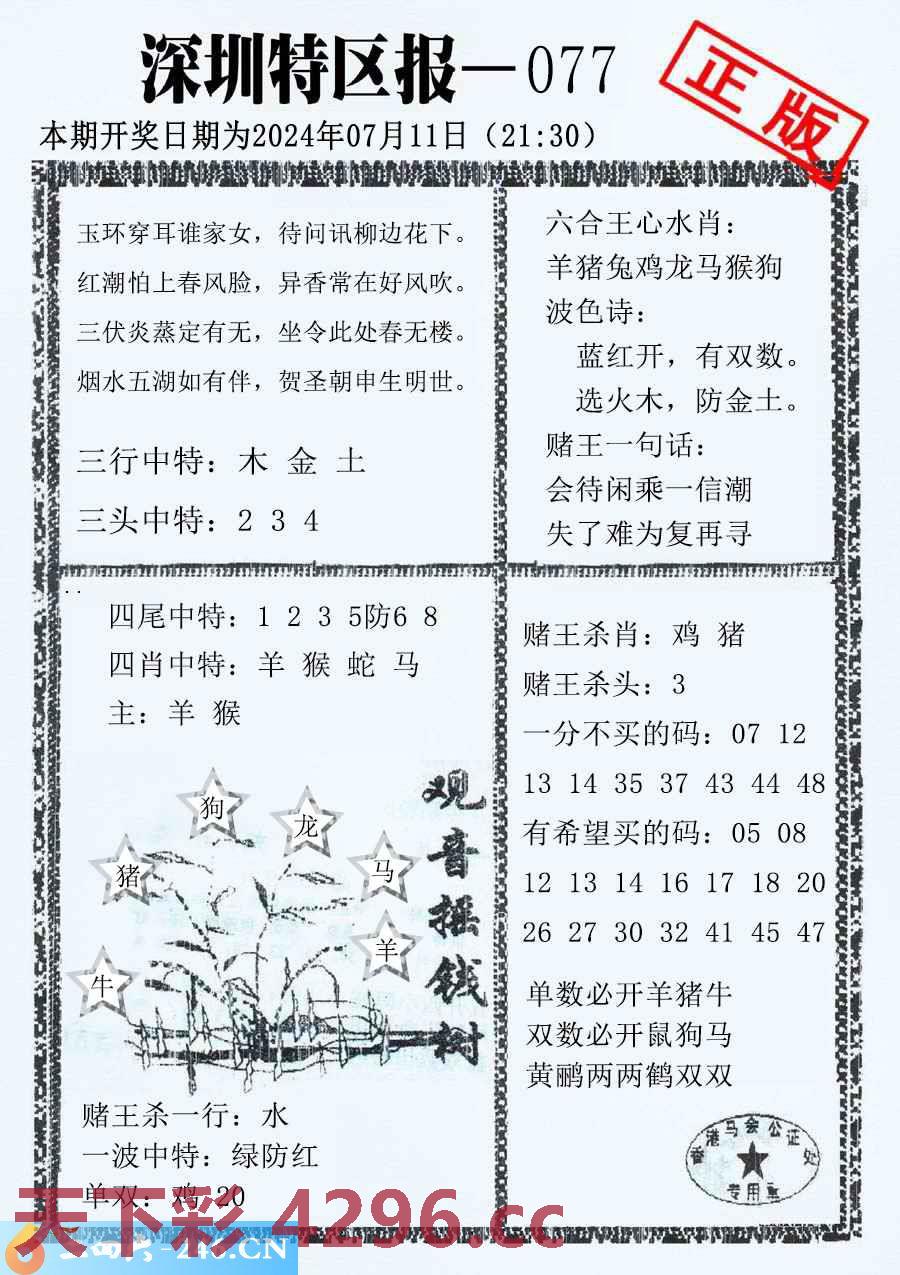 深圳特区报—077
正版
本期开奖日期为2024年07月11日（21:30）
玉环穿耳谁家女，待问讯柳边花下。
红潮怕上春风脸，异香常在好风吹。
三伏炎蒸定有无，坐令此处春无楼。
烟水五湖如有伴，贺圣朝申生明世。
三行中特：木 金 土
三头中特：2 3 4
六合王心水肖：
羊猪兔鸡龙马猴狗
波色诗：
蓝红开，有双数。
选火木，防金土。
赌王一句话：
会待闲乘一信潮
失了难为复再寻
四尾中特：1 2 3 5防6 8
四肖中特：羊 猴 蛇 马
主：羊 猴
狗
龙
猪
马
羊
牛
观音摇钱树
赌王杀一行：水
一波中特：绿防红
单双：鸡 20
赌王杀肖：鸡 猪
赌王杀头：3
一分不买的码：07 12
13 14 35 37 43 44 48
有希望买的码：05 08
12 13 14 16 17 18 20
26 27 30 32 41 45 47
单数必开羊猪牛
双数必开鼠狗马
黄鹂两两鹤双双
香港马会公证处
专用章
天下彩 4296.cc
-246.CN